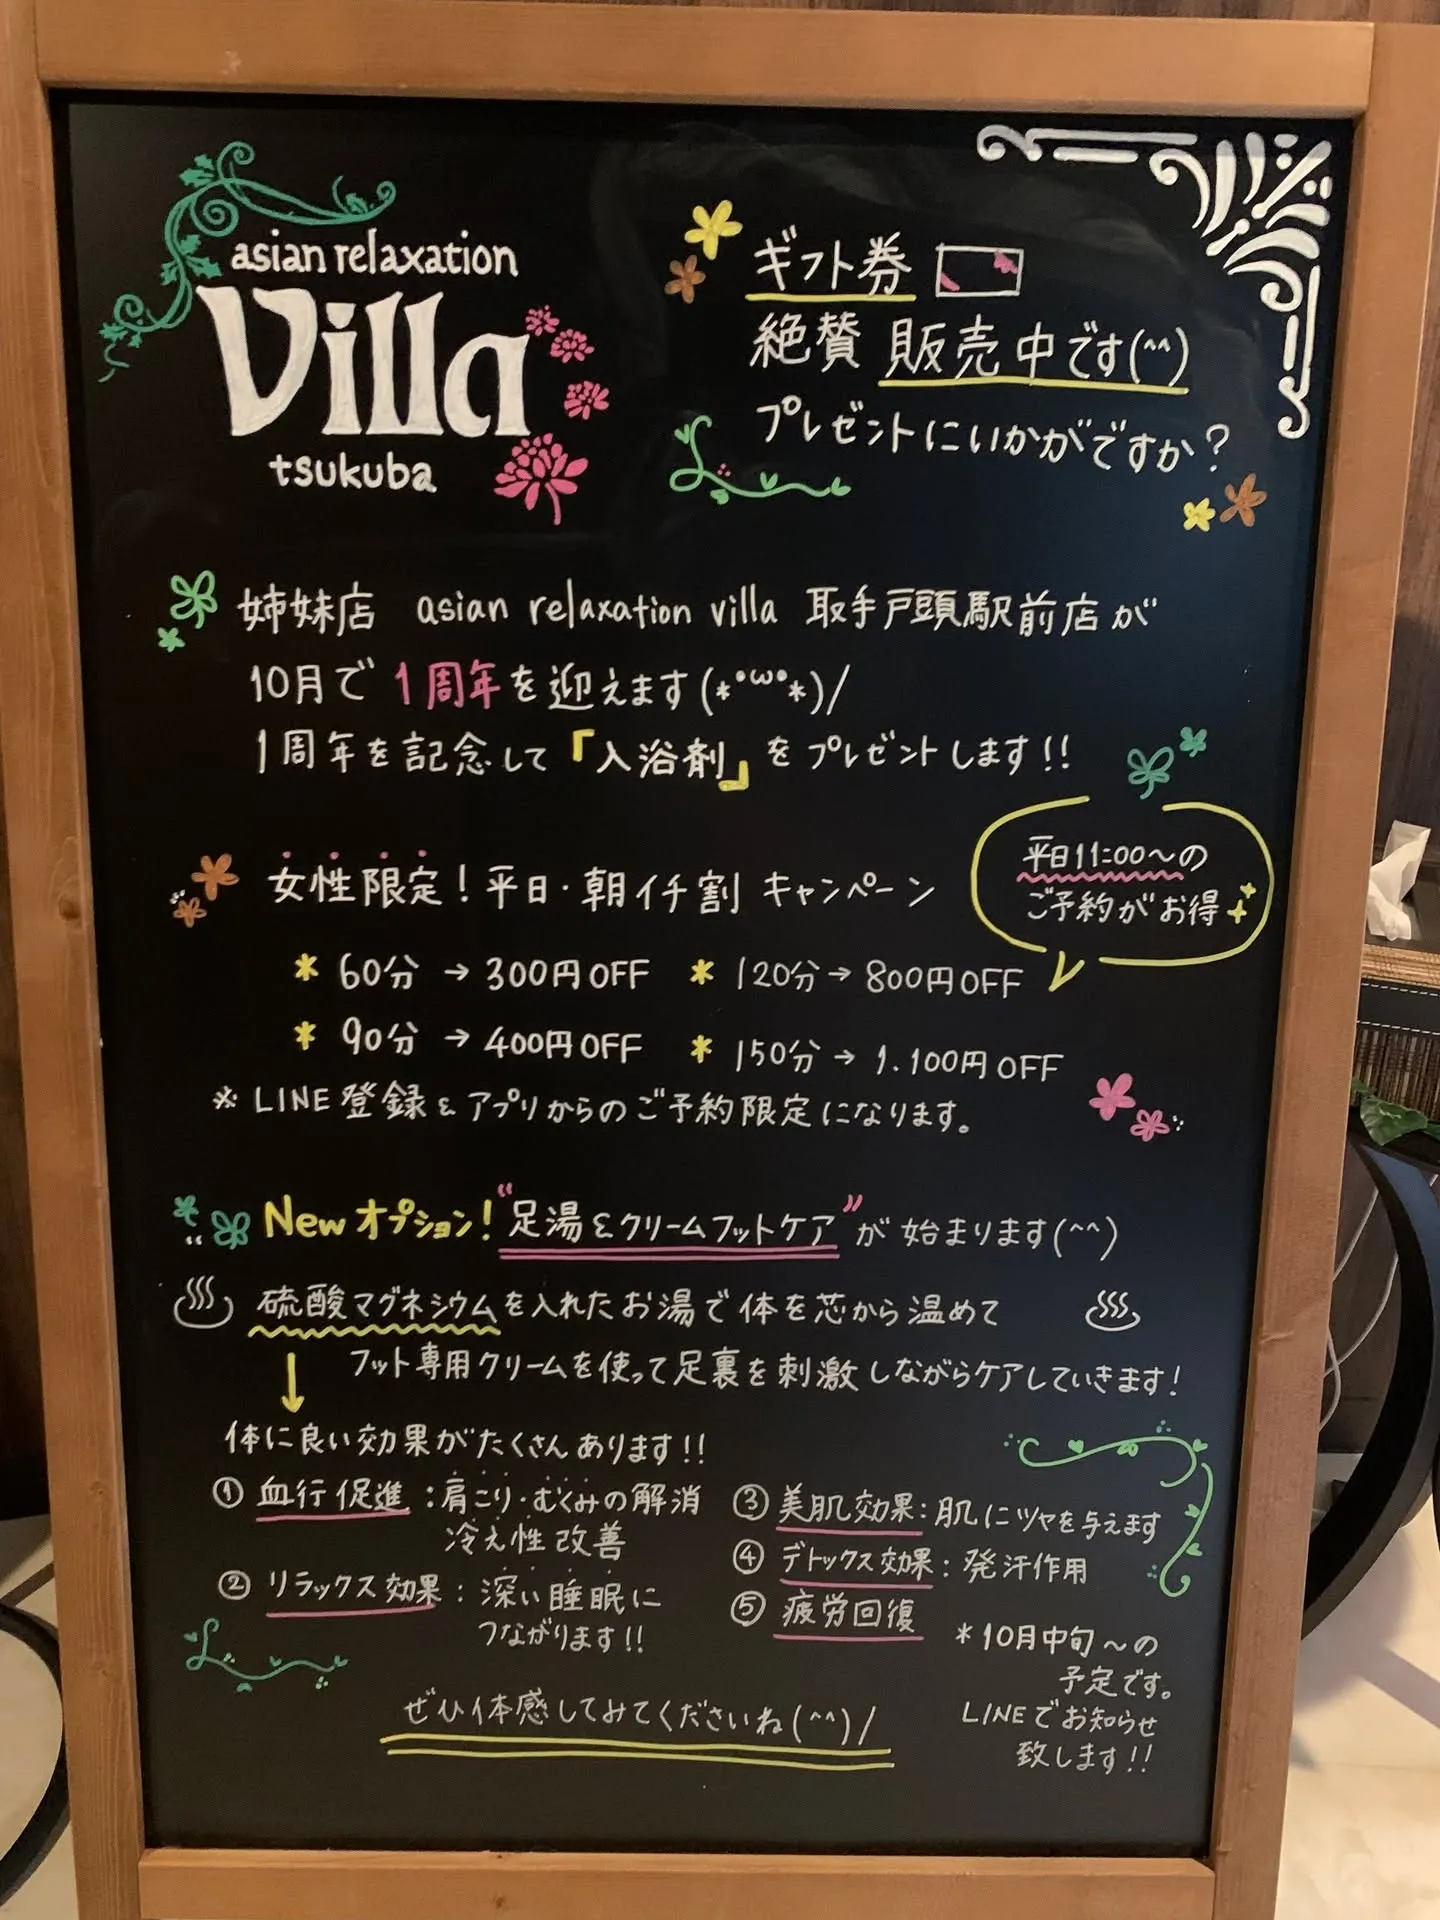 asian relaxation
Villa
tsukuba
ギフト券
絶賛 販売中です(^^)
プレゼントにいかがですか?
姉妹店 asian relaxation villa 取手戸頭駅前店が
10月で1周年を迎えます(*°ω°*)/
1周年を記念して『入浴剤』をプレゼントします!!
女性限定!平日・朝イチ割 キャンペーン
平日11:00〜の
ご予約がお得
* 60分 → 300円OFF * 120分 → 800円OFF
* 90分 → 400円OFF * 150分 → 1.100円OFF
※LINE登録&アプリからのご予約限定になります。
Newオプション!"足湯&クリームフットケア"が始まります(^^)
硫酸マグネシウムを入れたお湯で体を芯から温めて
↓ フット専用クリームを使って足裏を刺激しながらケアしていきます!
体に良い効果がたくさんあります!!
① 血行促進:肩こり・むくみの解消
冷え性改善
② リラックス効果:深い睡眠に
つながります!!
③ 美肌効果:肌にツヤを与えます
④ デトックス効果:発汗作用
⑤ 疲労回復
*10月中旬〜の
予定です。
LINEでお知らせ
致します!!
ぜひ体感してみてくださいね(^^)/